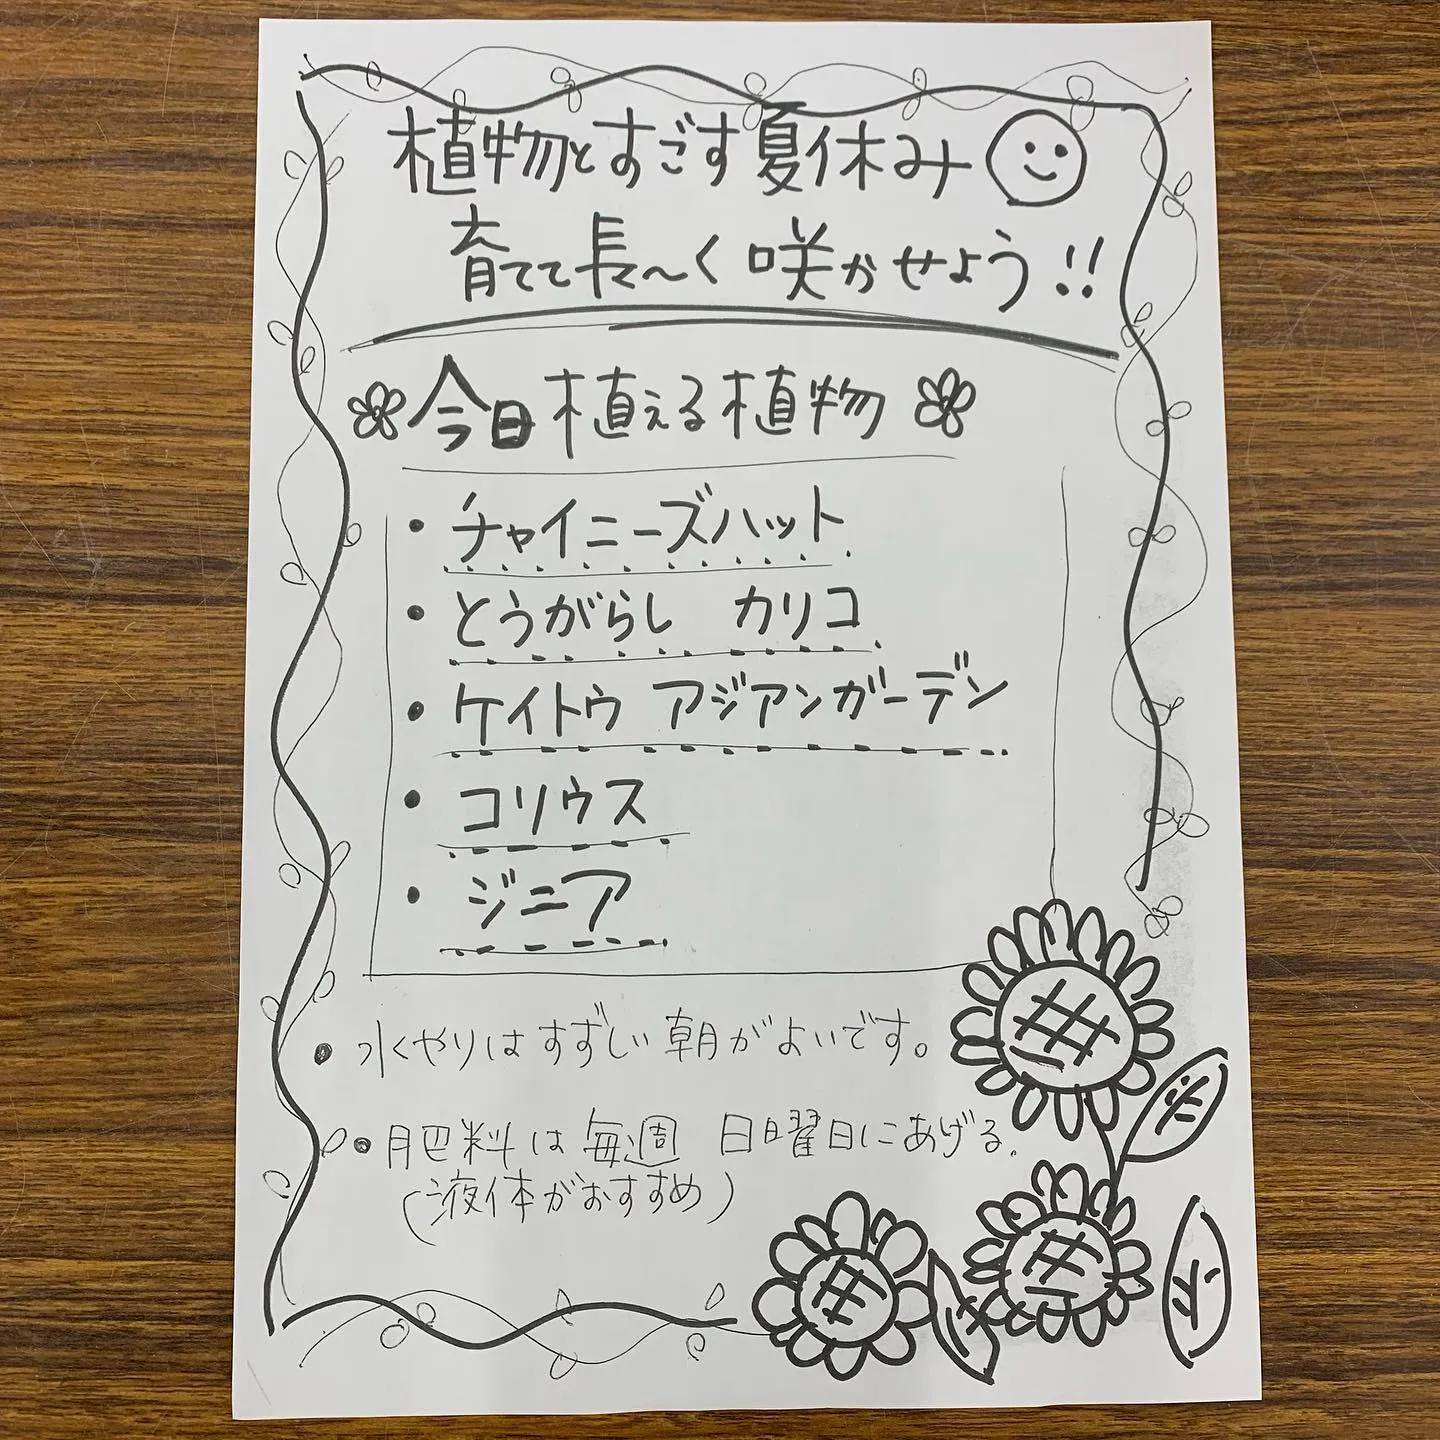 植物とすごす夏休み
育てて長〜く咲かせよう!!
今日植える植物
・チャイニーズハット
・とうがらし カリコ
・ケイトウ アジアンガーデン
・コリウス
・ジニア
・水やりはすずしい朝がよいです。
・肥料は毎週 日曜日にあげる.
(液体がおすすめ)